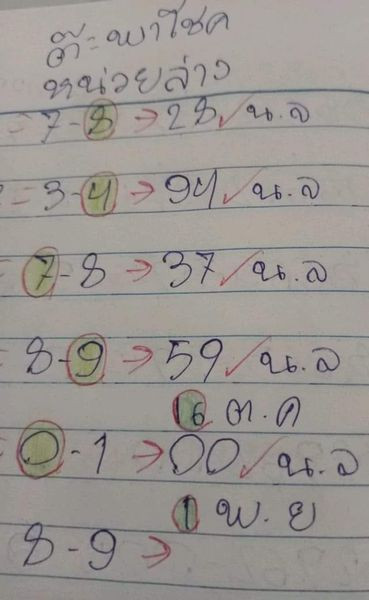 ต๊ะพาโชค
หน่วยล่าง
= 7-8 → 28 ✓ น.ล
= 3-4 → 94 ✓ น.ล
= 7-8 → 37 ✓ น.ล
8-9 → 59 ✓ น.ล
16 ต.ค
= 0-1 → 00 ✓ น.ล
1 พ.ย
8-9 →